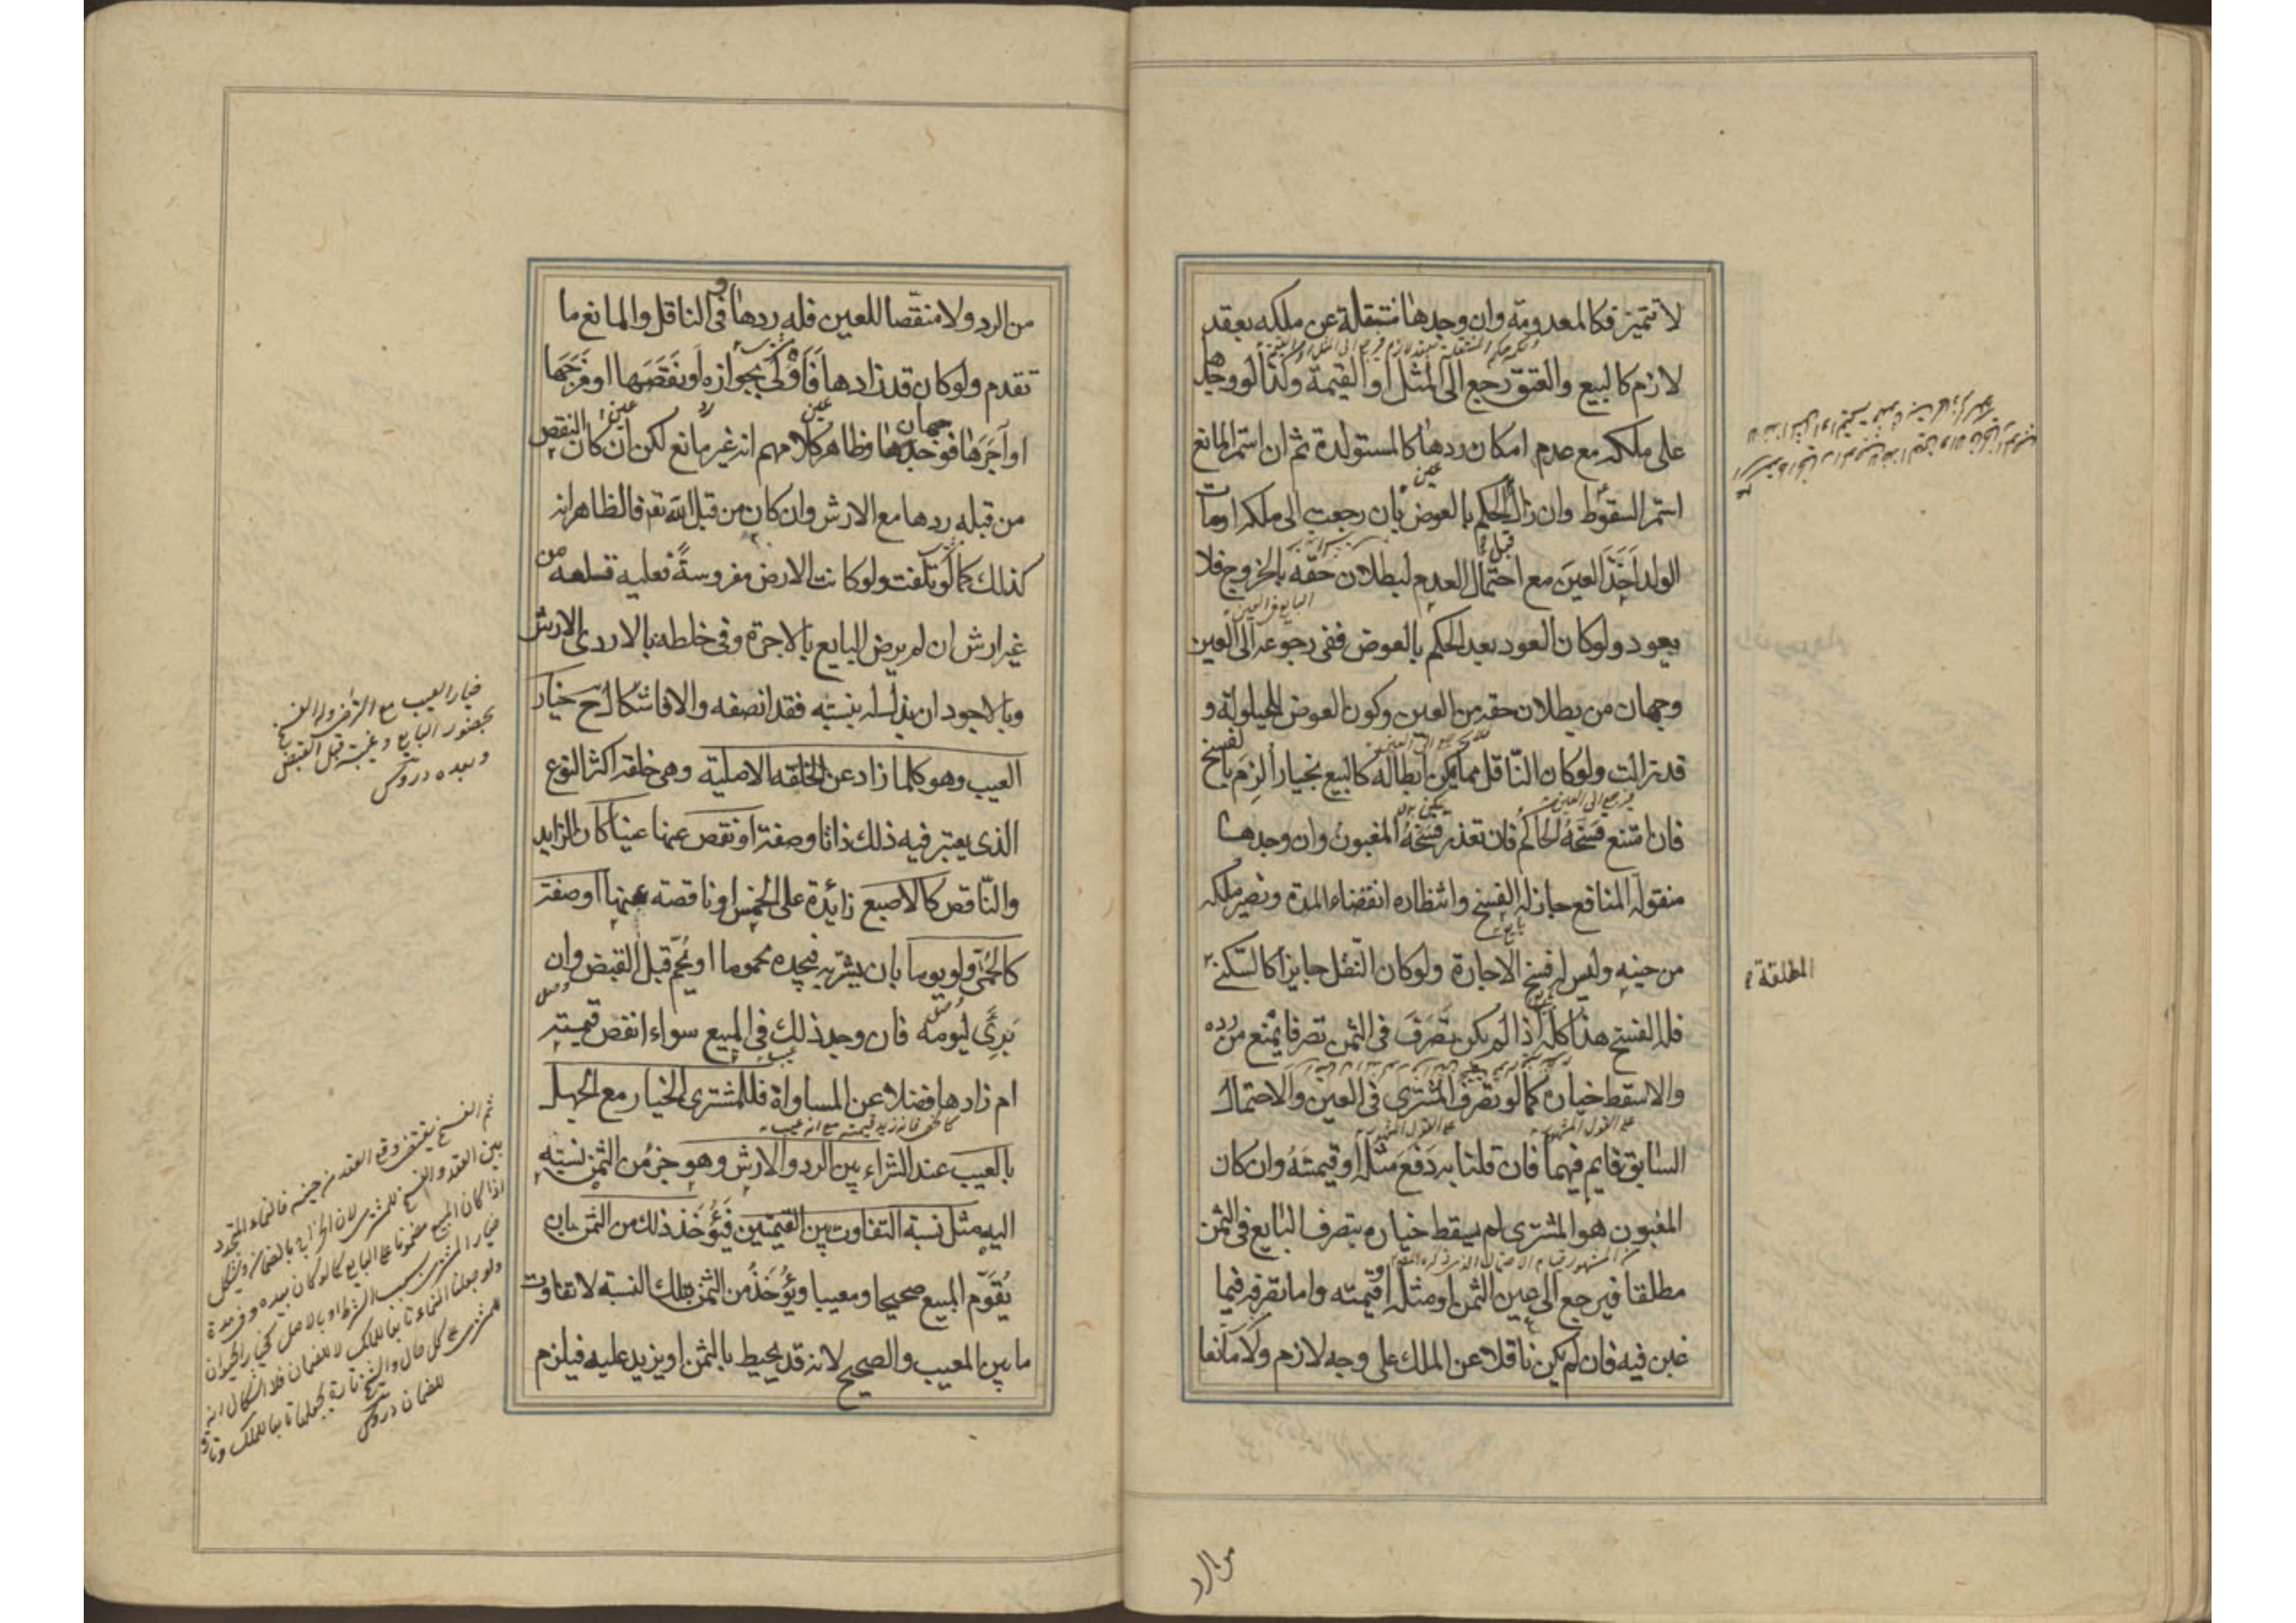 لا تتميز فكالمعدومة وان وجدها منتقلة عن ملكه بعقد
لازم كالبيع والعتق رجع الى المثل او القيمة وكذا لو وجدها
على ملكه مع عدم امكان ردها كالمستولدة ثم ان استمر المانع
استمر السقوط وان زال قبل الحكم بالعوض بان رجعت الى ملكه او مات
الولد اخذ العين مع احتمال العدم لبطلان حقه بالخروج فلا
يعود ولو كان العود بعد الحكم بالعوض ففى رجوعه الى العين
وجهان من بطلان حقه من العين وكون العوض للحيلولة و
قد زالت ولو كان الناقل مما يمكن ابطاله كالبيع بخيار الزم بالفسخ
فان امتنع فسخه الحاكم فان تعذر فسخه المغبون وان وجدها
منقولة المنافع جاز له الفسخ وانتظاره انقضاء المدة وتصير ملكه
من حينه وليس له فسخ الاجارة ولو كان النقل جايزا كالسكنى
المطلقة
فله الفسخ هذا كله اذا لم يكن تصرف فى الثمن تصرفا يمنع من رده
والا سقط خياره كما لو تصرف المشترى فى العين والاحتمال
السابق قايم فيهما فان قلنا به دفع مثله او قيمته وان كان
المغبون هو المشترى لم يسقط خياره بتصرف البايع فى الثمن
مطلقا فيرجع الى عين الثمن او مثله او قيمته واما تصرفه فيما
غبن فيه فان لم يكن ناقلا عن الملك على وجه لازم ولا مانعا
من الرد
من الرد ولا منقصا للعين فله ردها وفى الناقل والمانع ما
تقدم ولو كان قد زادها فاولى بجوازه او نقصها او مزجها
او آجرها فوجهان وظاهر كلامهم انه غير مانع لكن ان كان النقص
من قبله ردها مع الارش وان كان من قبل الله تعم فالظاهر انه
كذلك كما لو تلفت ولو كانت الارض مغروسة فعليه قلعه من
غير ارش ان لم يرض البايع بالاجرة وفى خلطه بالاردى الارش
وبالاجود ان بذل له بنسبته فقد انصفه والا فاشكال ح خيار
العيب وهو كلما زاد عن الخلقه الاصلية وهى خلقة اكثر النوع
الذى يعتبر فيه ذلك ذاتا وصفة او نقص عنها عينا كان الزايد
والناقص كالاصبع زايدة على الخمس او ناقصته عنها او صفة
كالحمى ولو يوما بان يشتريه فيجده محموما او يحم قبل القبض وان
برئ ليومه فان وجد ذلك فى المبيع سواء انقص قيمته
ام زادها فضلا عن المساواة فللمشترى الخيار مع الجهل
بالعيب عند الشراء بين الرد والارش وهو جزء من الثمن نسبته
اليه مثل نسبة التفاوت بين القيمتين فيؤخذ ذلك من الثمن بان
يقوم المبيع صحيحا ومعيبا ويؤخذ من الثمن بتلك النسبة لا تفاوت
ما بين المعيب والصحيح لانه قد يحيط بالثمن او يزيد عليه فيلزم
خيار العيب مع التراخى وله الفسخ
بحضور البايع وغيبته قبل القبض
وبعده دروس
ثم الفسخ يقتضى رفع العقد من حينه فالنماء المتجدد
بين العقد والفسخ للمشترى لان الخراج بالضمان ويشكل
اذا كان المبيع مضمونا على البايع كما لو كان بيده او فى مدة
خيار المشترى بسبب الشرط او بالاصل كخيار الحيوان
ولو جعلنا النماء تابعا للملك لا للضمان فلا اشكال انه
للمشترى على كل حال والشيخ تارة يجعلها تابعا للملك وتارة
للضمان دروس